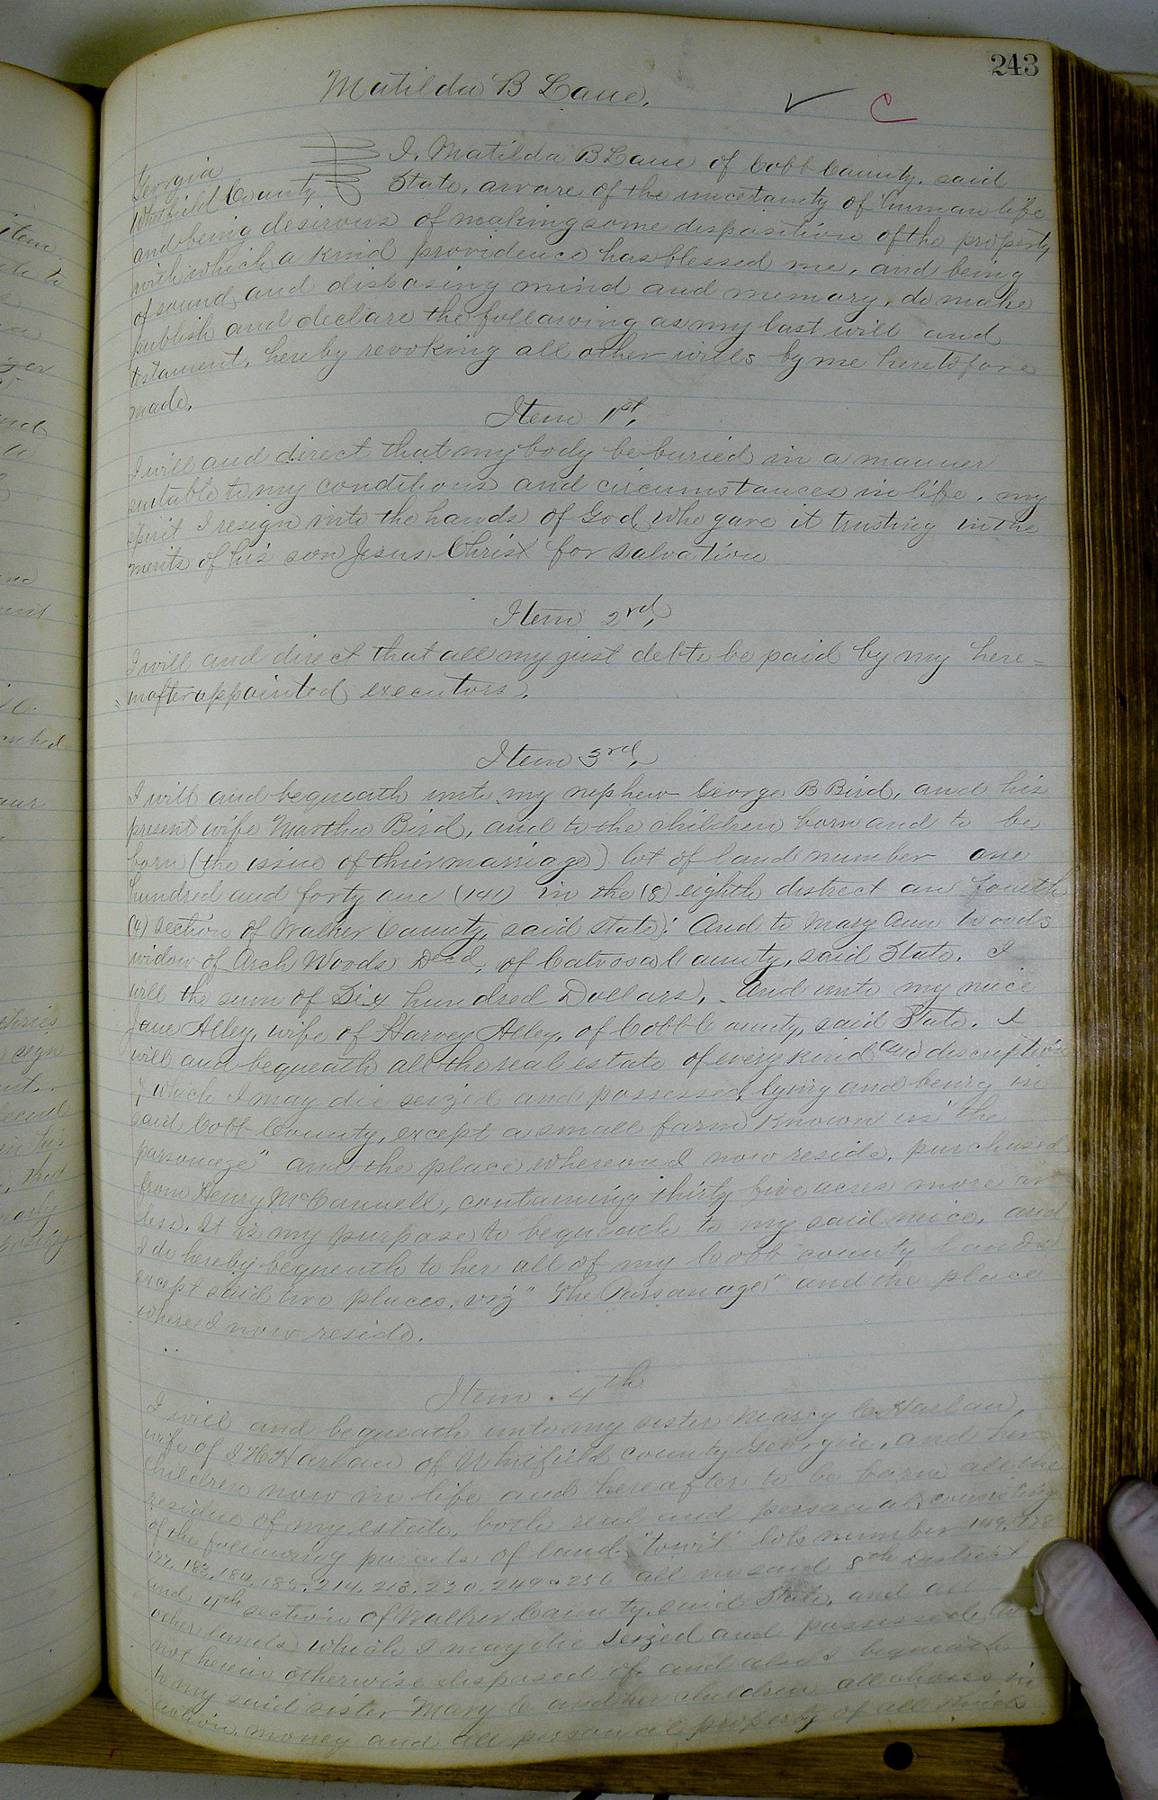 243
Matilda B Lane.
C
Georgia
Whitfield County
I, Matilda B Lane of Cobb County, said
State, aware of the uncertanty of human life
and being desirous of making some disposition of the property
with which a kind providence has blessed me, and being
of sound and disposing mind and memory, do make
publish and declare the following as my last will and
testament, hereby revoking all other wills by me heretofore
made.
Item 1st,
I will and direct that my body be buried in a manner
suitable to my conditions and circumstances in life, my
spirit I resign into the hands of God who gave it trusting in the
merits of his son Jesus Christ for salvation
Item 2nd,
I will and direct that all my just debts be paid by my here-
inafter appointed executors.
Item 3rd,
I will and bequeath unto my nephew George B Bird, and his
present wife Martha Bird, and to the children born and to be
born (the issue of thier marriage) lot of land number one
hundred and forty one (141) in the (8) eighth district an fourth
(4) section of Walker County, said state; And to Mary Ann Woods
widow of Arch Woods Decd, of Catoosa County, said State, I
will the sum of Six hundred Dollars, And unto my niece
Jane Alley, wife of Harvey Alley, of Cobb County, said State, I
will and bequeath all the real estate of every kind and discription
which I may die seized and possessed, lying and being in
said Cobb County, except a small farm known as "the
parsonage" and the place whereon I now reside, purchased
from Henry McConnell, containing thirty five acres more or
less. It is my purpose to bequeath to my said niece, and
I do hereby bequeath to her all of my Cobb county lands
except said two places, viz "The Parsonage" and the place
where I now reside.
Item 4th
I will and bequeath unto my sister Mary C Harlan,
wife of J H Harlan of Whitfield county Georgia, and her
children now in life and hereafter to be born all the
residue of my estate, both real and personal, consisting
of the following parcels of land, "towit" lots number 149, 178
177, 183, 184, 185, 214, 213, 220, 249 & 256 all in said 8th District
and 4th section of Walker County, said State, and all
other lands which I may die seized and possessed,
not herein otherwise disposed of, and also I bequeath
to my said sister Mary C and her children all choses in
action, money and all personal property of all kinds